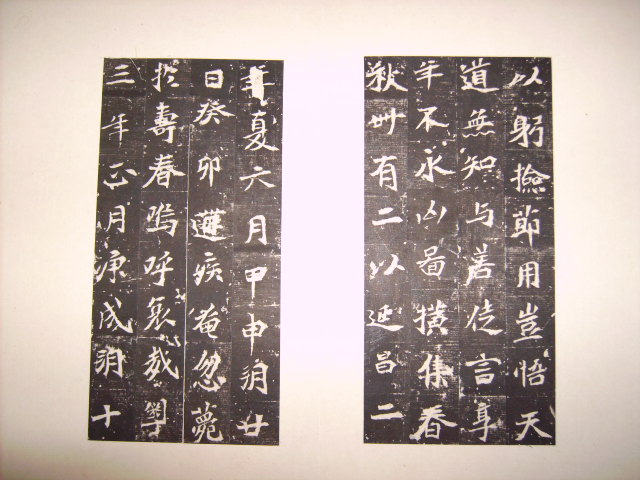 以躬撿節用豈悟天
道無知与善徒言享
年不永凶啚撗集春
秋卅有二以延昌二
年夏六月甲申朔廿
日癸卯遘疾奄忽薨
於壽春嗚呼哀哉粤
三年正月庚戌朔十